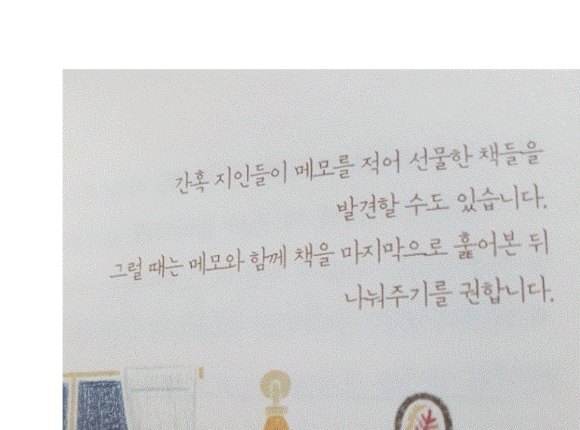 간혹 지인들이 메모를 적어 선물한 책들을
발견할 수도 있습니다.
그럴 때는 메모와 함께 책을 마지막으로 훑어본 뒤
나눠주기를 권합니다.